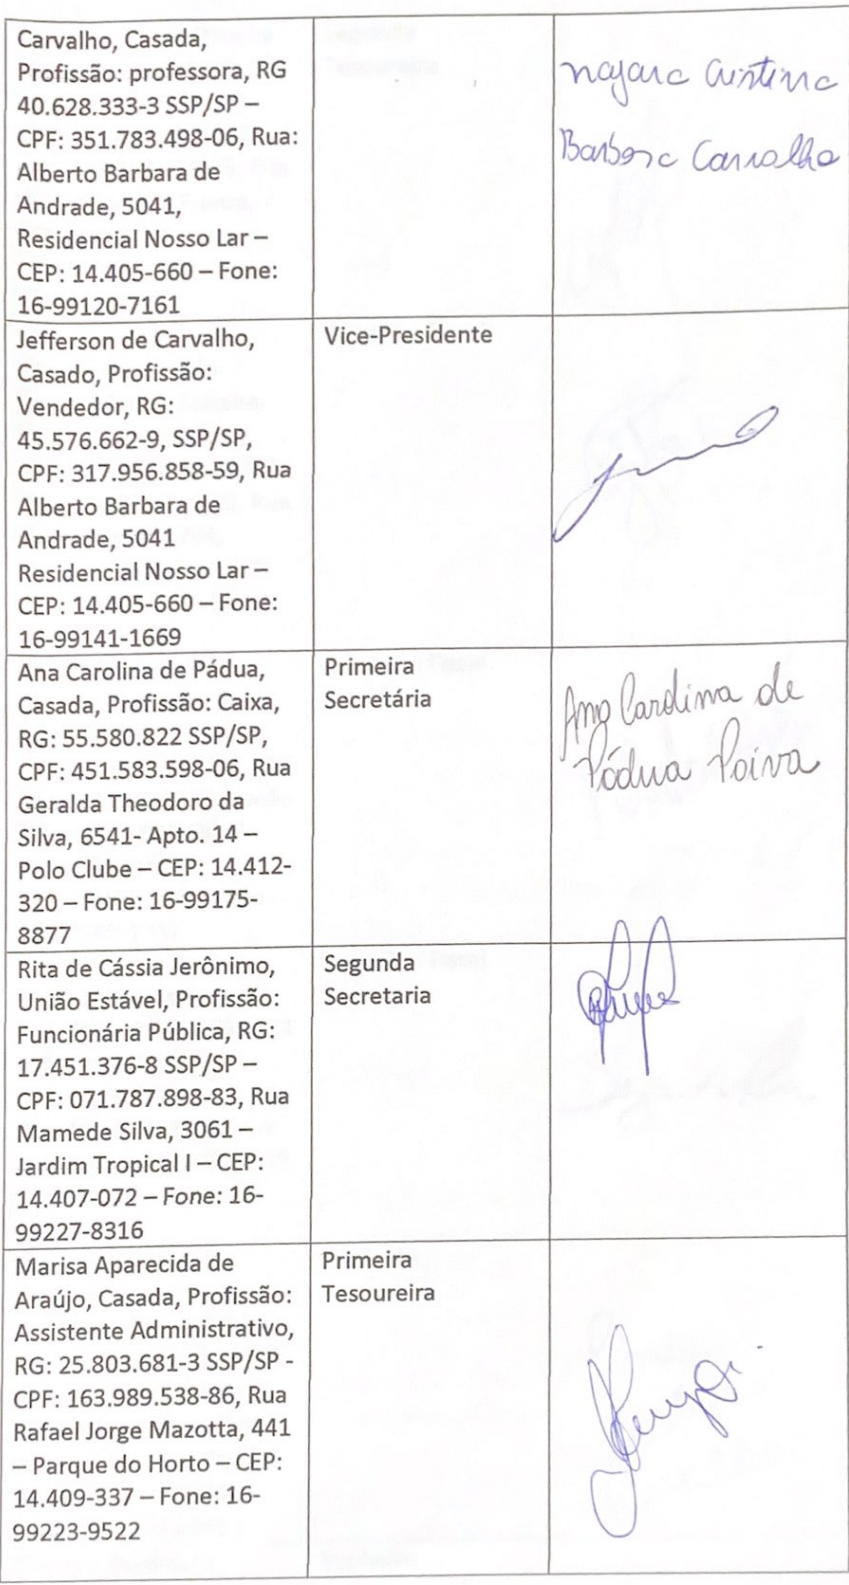 Carvalho, Casada,
Profissão: professora, RG
40.628.333-3 SSP/SP –
CPF: 351.783.498-06, Rua:
Alberto Barbara de
Andrade, 5041,
Residencial Nosso Lar –
CEP: 14.405-660 – Fone:
16-99120-7161
najara Cristina
Barbosa Carvalho
Jefferson de Carvalho,
Casado, Profissão:
Vendedor, RG:
45.576.662-9, SSP/SP,
CPF: 317.956.858-59, Rua
Alberto Barbara de
Andrade, 5041
Residencial Nosso Lar –
CEP: 14.405-660 – Fone:
16-99141-1669
Vice-Presidente
Ana Carolina de Pádua,
Casada, Profissão: Caixa,
RG: 55.580.822 SSP/SP,
CPF: 451.583.598-06, Rua
Geralda Theodoro da
Silva, 6541- Apto. 14 –
Polo Clube – CEP: 14.412-
320 – Fone: 16-99175-
8877
Primeira
Secretária
Ana Carolina de
Pádua Paiva
Rita de Cássia Jerônimo,
União Estável, Profissão:
Funcionária Pública, RG:
17.451.376-8 SSP/SP –
CPF: 071.787.898-83, Rua
Mamede Silva, 3061 –
Jardim Tropical I – CEP:
14.407-072 – Fone: 16-
99227-8316
Segunda
Secretaria
Marisa Aparecida de
Araújo, Casada, Profissão:
Assistente Administrativo,
RG: 25.803.681-3 SSP/SP -
CPF: 163.989.538-86, Rua
Rafael Jorge Mazotta, 441
– Parque do Horto – CEP:
14.409-337 – Fone: 16-
99223-9522
Primeira
Tesoureira